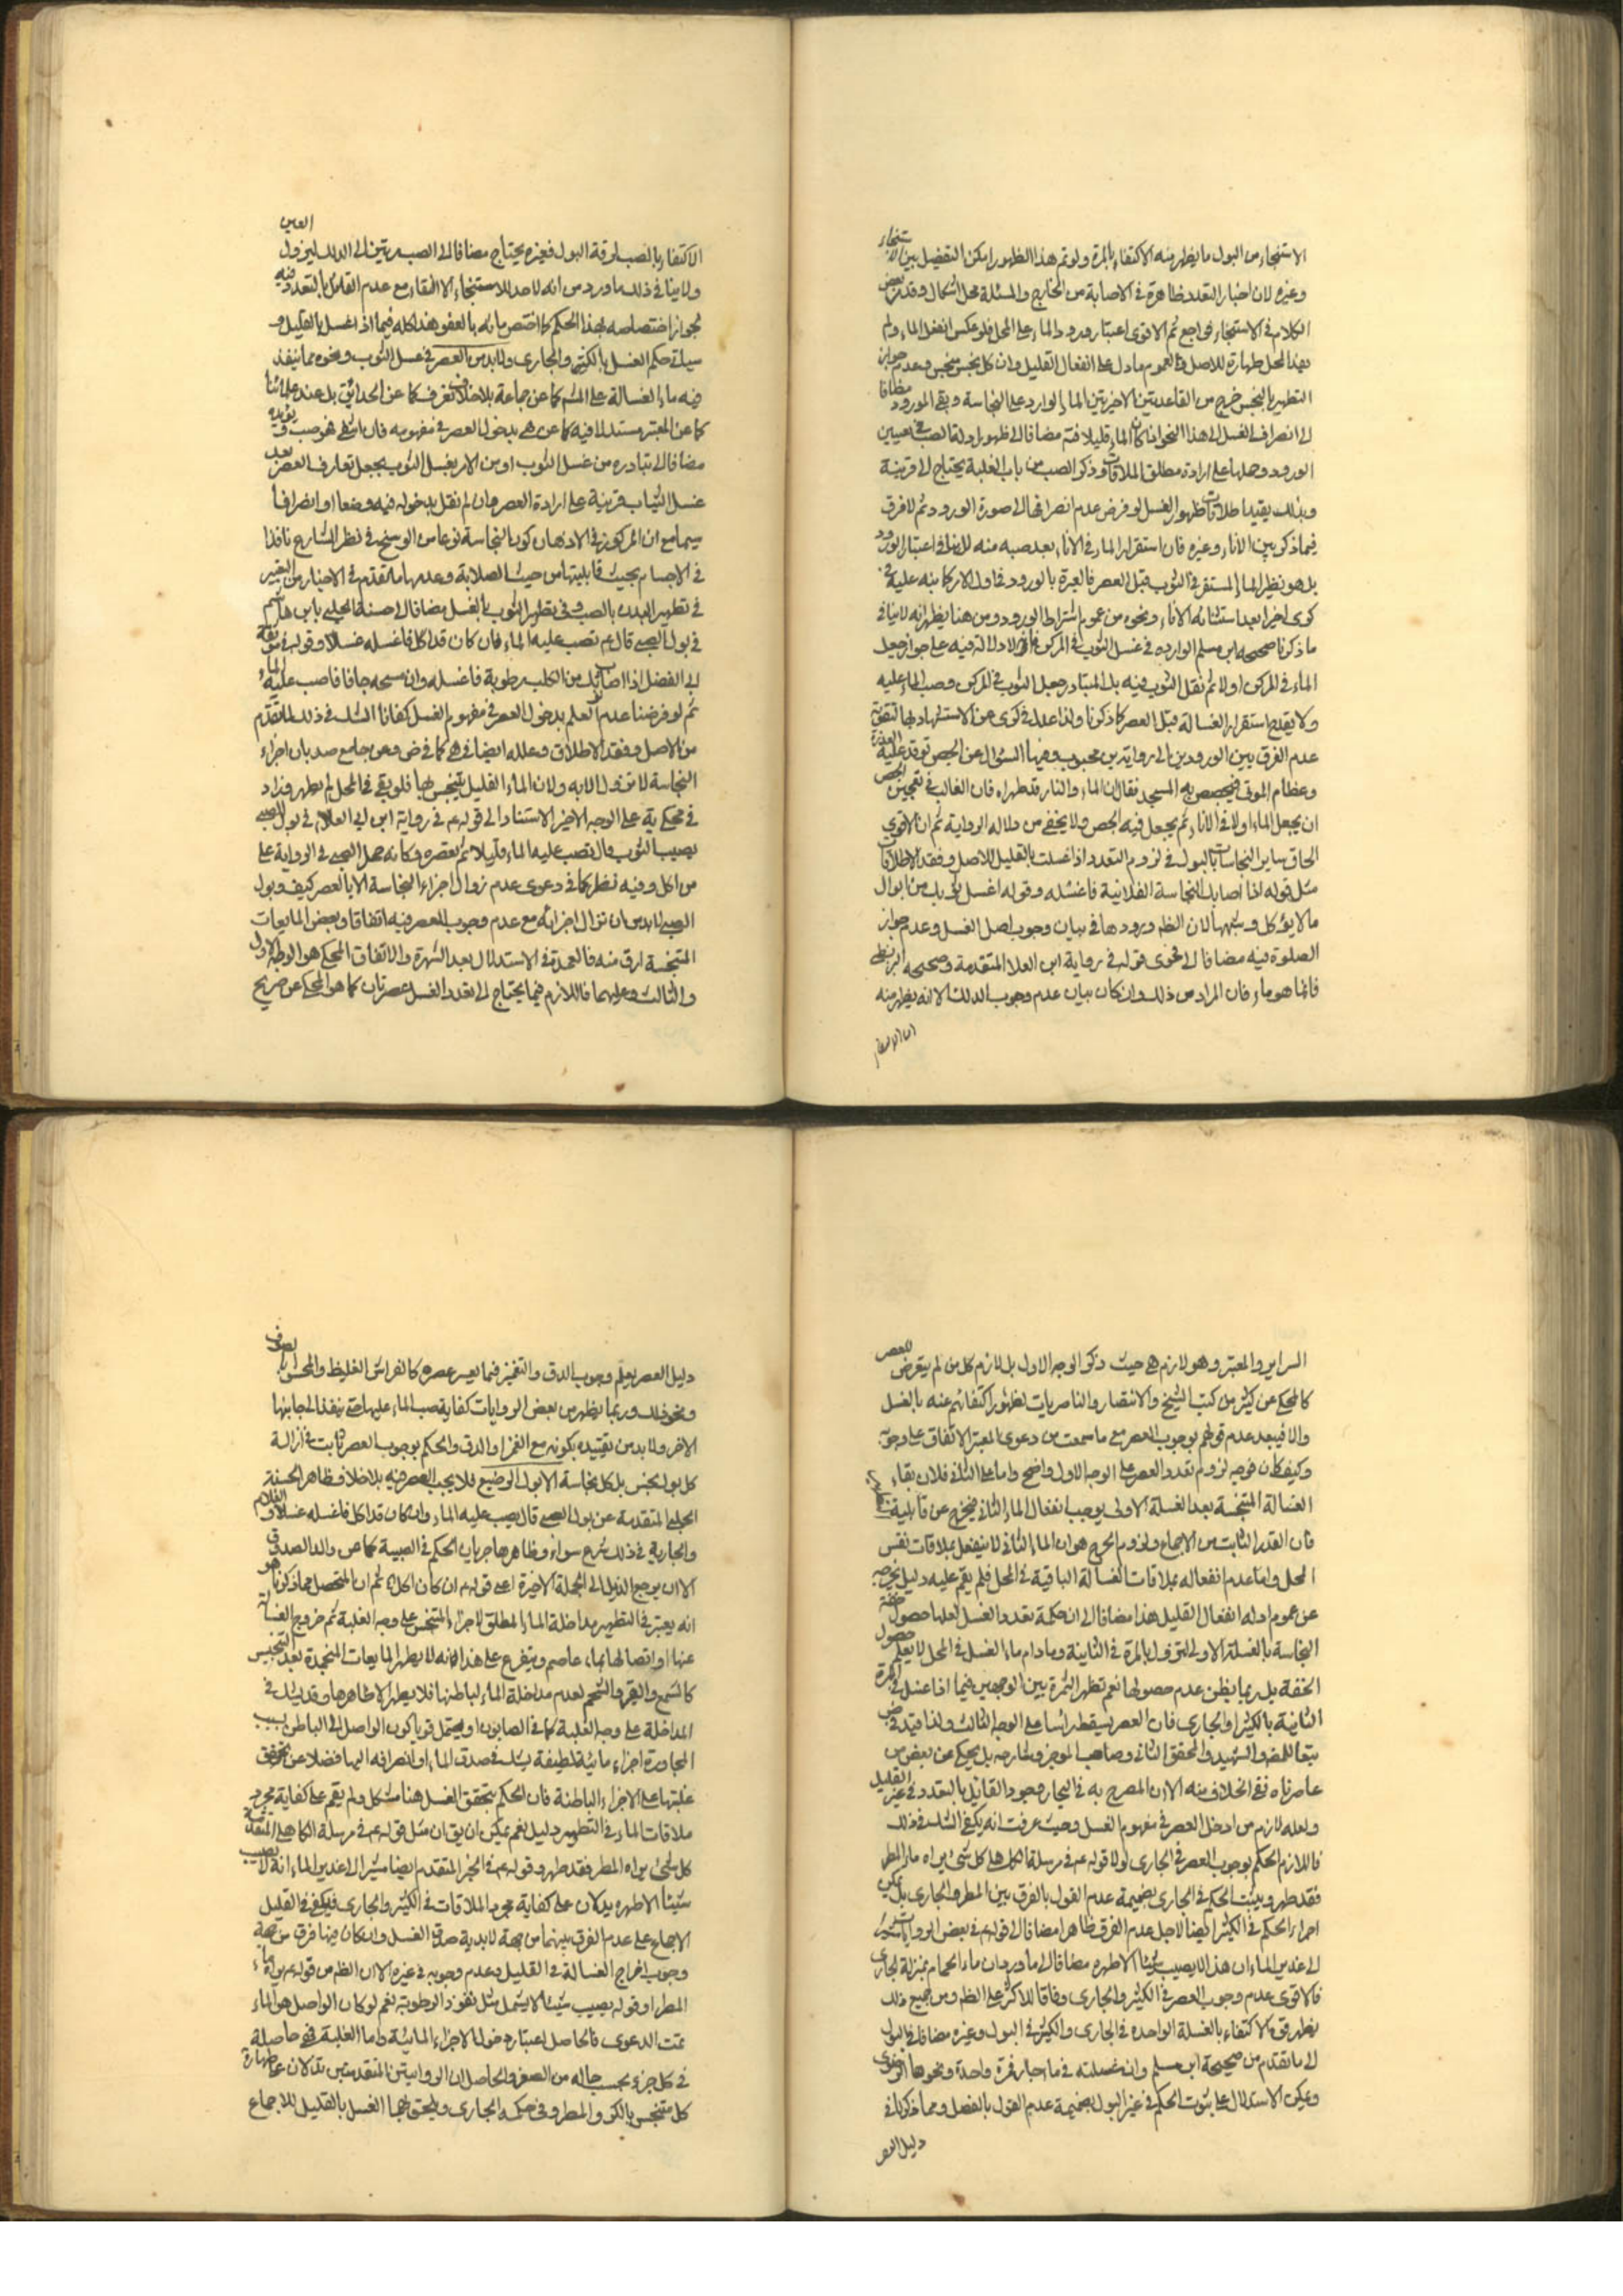 الاستنجاء من البول ما يظهر منه الاكتفاء بالمرة ولو تم هذا الظهور امكن التفضيل بين الاستنجاء
وغيره لان اخبار التعدد ظاهرة في الاصابة من الخارج والمسئلة محل اشكال وقد مر بعض
الكلام في الاستنجاء فراجع ثم الاقوى اعتبار ورود الماء على المحل فلو عكس انفعل الماء ولم
يفد المحل طهارة للاصل وعموم ما دل على انفعال القليل وان كل نجس منجس وعدم جواز
التطهير بالنجس خرج من القاعدتين الاخيرتين الماء الوارد على النجاسة وبقى المورود مضافا
الى انصراف الغسل الى هذا النحو اذا كان الماء قليلا فتم مضافا الى ظهور ادلة الصب في تعيين
الورود وحملها على ارادة مطلق الملاقات وذكر الصب من باب الغلبة يحتاج الى قرينة
وبذلك يقيد اطلاقات ظهور الغسل لو فرض عدم انصرافها الى صورة الورود ثم لا فرق
فيما ذكر بين الاناء وغيره فان استقرار الماء في الاناء بعد صبه منه لا ينافي اعتبار الورود
بل هو نظير الماء المستقر في الثوب قبل العصر فالعبرة بالورود في اول الامر كما نبه عليه في
كرى اخيرا بعد استثنائه الاناء ونحوه من عموم اشتراط الورود ومن هنا يظهر انه لا ينافي
ما ذكرنا صحيحه ابن مسلم الوارده في غسل الثوب في المركن فانه لا دلالة فيه على جواز جعل
الماء في المركن اولا ثم نقل الثوب فيه بل المتبادر جعل الثوب في المركن وصب الماء عليه
ولا يقدح استقرار الغسالة قبل العصر كما ذكرنا ولذا عدل في كرى عن الاستشهاد بها لتقوية
عدم الفرق بين الورودين الى رواية بن محبوب وفيها السؤال عن الجص توقد عليه العذرة
وعظام الموتى فيجصص به المسجد فقال ان الماء والنار قد طهراه فان الغالب في تعجين الجص
ان يجعل الماء اولا في الاناء ثم يجعل فيه الجص ولا يخفى من دلاله الرواية ثم ان الاقوى
الحاق ساير النجاسات بالبول في لزوم التعدد اذا غسلت بالقليل للاصل وفقد الاطلاق
مثل قوله اذا اصابك النجاسة الفلانية فاغسله وقوله اغسل ثوبك من ابوال
ما لا يؤكل وشبهها لان الظم ورودها في بيان وجوب اصل الغسل وعدم جواز
الصلوة فيه مضافا الى فحوى قوله في رواية ابن العلا المتقدمة وصحيحه البزنطي
فانما هو ماء فان المراد من ذلك وان كان بيان عدم وجوب الدلك الا انه يظهر منه
الاكتفاء بالصب لرقة البول فغيره يحتاج مضافا الى الصب مرتين الى الدلك ليزول العين
ولا ينافي ذلك ما ورد من انه لا حد للاستنجاء الا النقاء مع عدم القائل بالتعدد فيه
لجواز اختصاصه بهذا الحكم كما اختص مائه بالعفو هذا كله فيما اذا غسل بالقليل و
سيأتي حكم الغسل بالكثير والجارى ولا بد من العصر في غسل الثوب ونحوه مما ينفذ
فيه ماء الغسالة على المشهور كما عن جماعة بلا خلاف نعرف كما عن الحدائق بل عند علمائنا
كما عن المعتبر مستدلا فيه كما عن هى بدخول العصر في مفهومه فان ما لا عصر فهو صب ويؤيده
مضافا الى تبادره من غسل الثوب او من الامر بغسل الثوب يجعل تعارف العصر بعد
غسل الثياب قرينة على ارادة العصر وان لم نقل بدخوله فيه وضعا او انصرافا
سيما مع ان المركوز في الاذهان كون النجاسة نوعا من الوسخ في نظر الشارع نافذا
في الاجسام بحيث قابليتها من حيث الصلابة وعدمها ما تقدم في الاخبار من التعبير
في تطهير البدن بالصب وفي تطهير الثوب بالغسل مضافا الى حسنة الحلبى بابن هاشم
في بول الصبي قال عم تصب عليه الماء فان كان قد اكل فاغسله غسلا وقوله في موثقة
ابي الفضل اذا اصاب ثوبك من الكلب رطوبة فاغسله وان مسحه جافا فاصب عليه الماء
ثم لو فرضنا عدم العلم بدخول العصر في مفهوم الغسل كفانا الشك في ذلك لما تقدم
من الاصل وفقد الاطلاق وعلله ايضا في هى كما في ض وعن جامع صد بان اجزاء
النجاسة لا تزول الا به ولان الماء القليل يتنجس بها فلو بقى في المحل لم يطهر وزاد
في محكى ية على الوجه الاخير الاستناد الى قوله عم في رواية ابن ابي العلاء في بول الصبي
يصيب الثوب قال تصب عليه الماء قليلا ثم تعصره وكانه حمل الصبي في الرواية على
من اكل وفيه نظر كما في دعوى عدم زوال اجزاء النجاسة الا بالعصر كيف وبول
الصبي لا بد من ان تزال اجزائه مع عدم وجوب العصر فيه اتفاقا وبعض المايعات
المتنجسة ارق منه فالعمدة في الاستدلال بعد الشهرة والاتفاق المحكى هو الوجه الاول
والثالث وعليهما فاللازم فيما يحتاج الى تعدد الغسل عصرتان كما هو المحكى عن صريح
السراير والمعتبر وهو لازم هى حيث ذكر الوجه الاول بل لازم كل من لم يتعرض للعصر
كالمحكى عن كثير من كتب الشيخ والانتصار والناصريات لظهور اكتفائهم عنه بالغسل
والا فيبعد عدم قولهم بوجوب العصر مع ما سمعت من دعوى المعتبر الاتفاق على وجوبه
وكيف كان فوجه لزوم تعدد العصر على الوجه الاول واضح واما على الثالث فلان بقاء
الغسالة المتنجسة بعد الغسلة الاولى يوجب انفعال الماء الثاني فيخرج عن قابلية
فان القدر الثابت من الاجماع ولزوم الحرج هو ان الماء الثاني لا ينفعل بملاقات نفس
المحل واما عدم انفعاله بملاقات الغسالة الباقية في المحل فلم يقم عليه دليل يخرجه
عن عموم ادله انفعال القليل هذا مضافا الى ان حكمة تعدد الغسل لعلها حصول خفة
النجاسة بالغسلة الاولى لتزول بالمرة في الثانية وما دام ماء الغسل في المحل لا يعلم حصول
الخفة بل ربما يظن عدم حصولها نعم تظهر الثمرة بين الوجهين فيما اذا غسل في المرة
الثانية بالكثير او الجارى فان العصر يسقط راسا على الوجه الثالث ولذا قيد في ض
تبعا للمض والشهيد والمحقق الثاني وصاحب الموجز وشارحه بل يحكى عن بعض من
عاصرناه نفى الخلاف منه الا ان المصرح به في البحار وجود القائل بالتعدد في غير القليل
ولعله لازم من ادخل العصر في مفهوم الغسل وحيث عرفت انه يكفى الشك في ذلك
فاللازم الحكم بوجوب العصر في الجارى لولا قوله عم في مرسلة الكاهلى كل شئ يراه ماء المطر
فقد طهر ويثبت الحكم في الجارى بضميمة عدم القول بالفرق بين المطر والجارى بل يمكن
اجراء الحكم في الكثير ايضا لاجل عدم الفرق ظاهرا مضافا الى قوله عم في بعض الروايات مشيرا
الى غدير الماء ان هذا لا يصيب شيئا الا طهره مضافا الى ما ورد ان ماء الحمام بمنزلة الجارى
فالاقوى عدم وجوب العصر في الكثير والجارى وفاقا للاكثر على الظم ومن جميع ذلك
يظهر قوة الاكتفاء بالغسلة الواحده في الجارى والكثير في البول وغيره مضافا في البول
الى ما تقدم من صحيحة ابن مسلم وان غسلته في ماء جار فمرة واحدة ونحوها الرضوى
ويمكن الاستدلال على ثبوت الحكم في غير البول بضميمة عدم القول بالفصل ومما ذكرنا في
دليل العصر
دليل العصر يعلم وجوب الدق والتغميز فيما يعسر عصره كالفراش الغليظ والمحشو بالصوف
ونحو ذلك وربما يظهر من بعض الروايات كفاية صب الماء عليها حتى ينفذ الى جانبها
الاخر ولا بد من تقييده بكونه مع الغمز او الدق والحكم بوجوب العصر ثابت في ازالة
كل بول نجس بل كل نجاسة الا بول الرضيع فلا يجب العصر فيه بلا خلاف ظاهر الحسنة
الحلبى المتقدمة عن بول الصبي قال يصب عليه الماء وان كان قد اكل فاغسله غسلا والغلام
والجارية في ذلك شرع سواء وظاهرها جريان الحكم في الصبية كما عن والد الصدوق
الا ان يرجع الذيل الى الجملة الاخيرة اعنى قوله عم ان كان اكل ثم ان المتحصل مما ذكرنا هو
انه يعتبر في التطهير مداخلة الماء المطلق لاجزاء المتنجس على وجه الغلبة ثم خروج الغسالة
عنها او اتصالها بماء عاصم ويتفرع على هذا انه لا يطهر المايعات المنجمدة بعد التنجيس
كالشمع والقير والشحم لعدم مداخلة الماء لباطنها فلا يطهر الا ظاهرها وقد يشك في
المداخلة على وجه الغلبة كما في الصابون او يحتمل قويا كون الواصل الى الباطن بسبب
المجاورة اجزاء مائية لطيفة يشك في صدق الماء او انصرافه اليها فضلا عن تحقق
غلبتها على الاجزاء الباطنة فان الحكم بتحقق الغسل هنا مشكل ولم يقم على كفاية مجرد
ملاقات الماء في التطهير دليل نعم يمكن ان يق ان مثل قوله عم في مرسلة الكاهلى المتقدمة
كل شئ يراه المطر فقد طهر وقوله عم في الخبر المتقدم ايضا مشيرا الى غدير الماء انه لا يصيب
شيئا الا طهره يدلان على كفاية مجرد الملاقات في الكثير والجارى فيكفى في القليل
الاجماع على عدم الفرق بينهما من جهة لابدية صدق الغسل وان كان فيها فرق من جهة
وجوب اخراج الغسالة في القليل وعدم وجوبه في غيره الا ان الظم من قوله عم يراه ماء
المطر او قوله يصيب شيئا لا يشمل مثل نفوذ الرطوبة نعم لو كان الواصل هو الماء
تمت الدعوى فالحاصل اعتبار دخول الاجزاء المائية واما الغلبة فهى حاصلة
في كل جزء بحسب حاله من الصغر والحاصل ان الروايتين المتقدمتين تدلان على طهارة
كل متنجس بالكر والمطر وفى حكمه الجارى ويلحق بهما الغسل بالقليل للاجماع